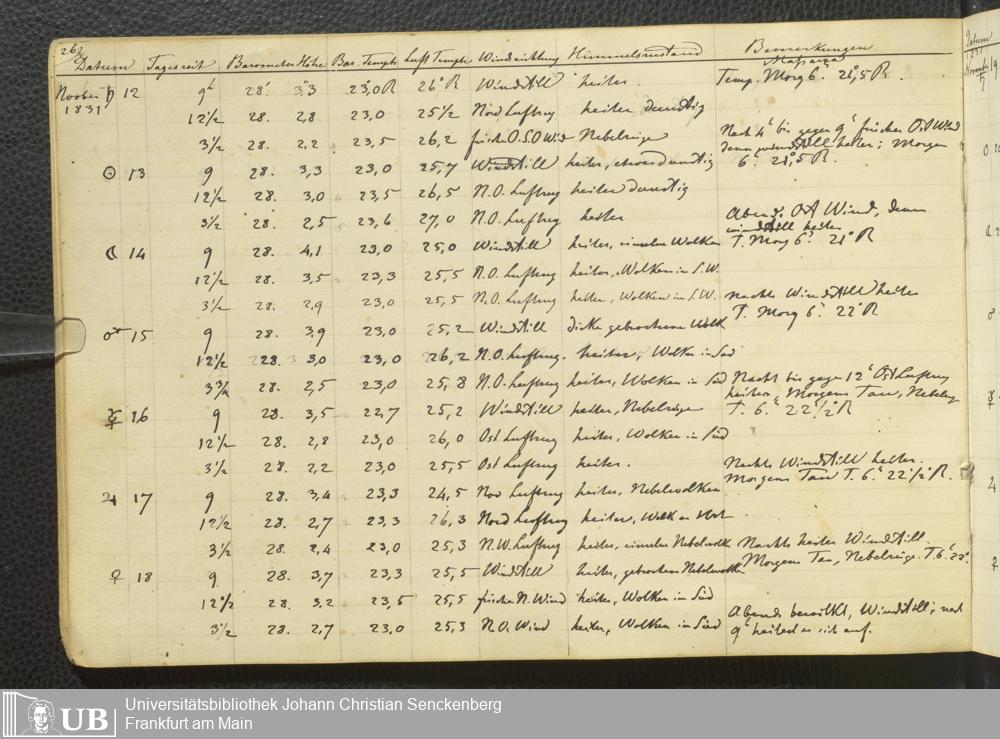 262
Datum Tageszeit Barometer Höhe Bar. Tempt Luft Tempt Windrichtung Himmelszustand Bemerkungen
Massaua
Novber ♄ 12 9h 28. 3,3 23,0R 26°R Windstill heiter. Temp. Morg 6h. 21,5 R.
1831
12½ 28. 2,8 23,0 25½ Nord Luftzug heiter, dunstig
3½ 28. 2,2 23,5 26,2 frischer O.S.O Wind Nebelzüge Nach 4h bis gegen 9h frischer Ost Wind
dann windstill heiter; Morgen
☉ 13 9 28. 3,3 23,0 25,7 Windstill heiter, etwas dunstig 6h. 21,5 R.
12½ 28. 3,0 23,5 26,5 N.O. Luftzug heiter dunstig
3½ 28. 2,5 23,6 27,0 N.O. Luftzug heiter Abends Ost Wind, dann
windstill heiter
☾ 14 9 28. 4,1 23,0 25,0 Windstill heiter, einzelne Wolken T. Morg 6h. 21° R
12½ 28. 3,5 23,3 25,5 N.O. Luftzug heiter, Wolken in S.W.
3½ 28. 2,9 23,0 25,5 N.O. Luftzug heiter, Wolken in S.W. Nachts Windstill heiter
♂ 15 9 28. 3,9 23,0 25,2 Windstill dicke gebrochene Wolk T. Morg 6h. 22° R
12½ 28. 3,0 23,0 26,2 N.O. Luftzug. heiter, Wolken in Süd
3¾ 28. 2,5 23,0 25,8 N.O. Luftzug heiter, Wolken in Süd Nacht bis gegen 12h Ost Luftzug
heiter, Morgens Tau, Nebelzüge
☿ 16 9 28. 3,5 22,7 25,2 Windstill heiter, Nebelzüge T. 6h. 22½° R
12½ 28. 2,8 23,0 26,0 Ost Luftzug heiter, Wolken in Süd
3½ 28. 2,2 23,0 25,5 Ost Luftzug heiter. Nachts Windstill heiter.
♃ 17 9 28. 3,4 23,3 24,5 Nor Luftzug heiter, Nebelwolken Morgens Tau T. 6h. 22½° R.
12½ 28. 2,7 23,3 26,3 Nord Luftzug heiter, Wolk
3½ 28. 2,4 23,0 25,3 N.W. Luftzug heiter, einzelne Nebelwolk Nachts heiter Windstill.
♀ 18 9 28. 3,7 23,3 25,5 Windstill heiter, gebrochene Nebelwolken Morgens Tau, Nebelzüge. T. 6h. 22°.
12½ 28. 3,2 23,5 25,5 frischer N. Wind heiter, Wolken in Süd
3½ 28. 2,7 23,0 25,3 N.O. Wind heiter, Wolken in Süd Abends bewölkt, Windstill; nach
9h heitert es sich auf.
Datum
1831
UB
Universitätsbibliothek Johann Christian Senckenberg
Frankfurt am Main